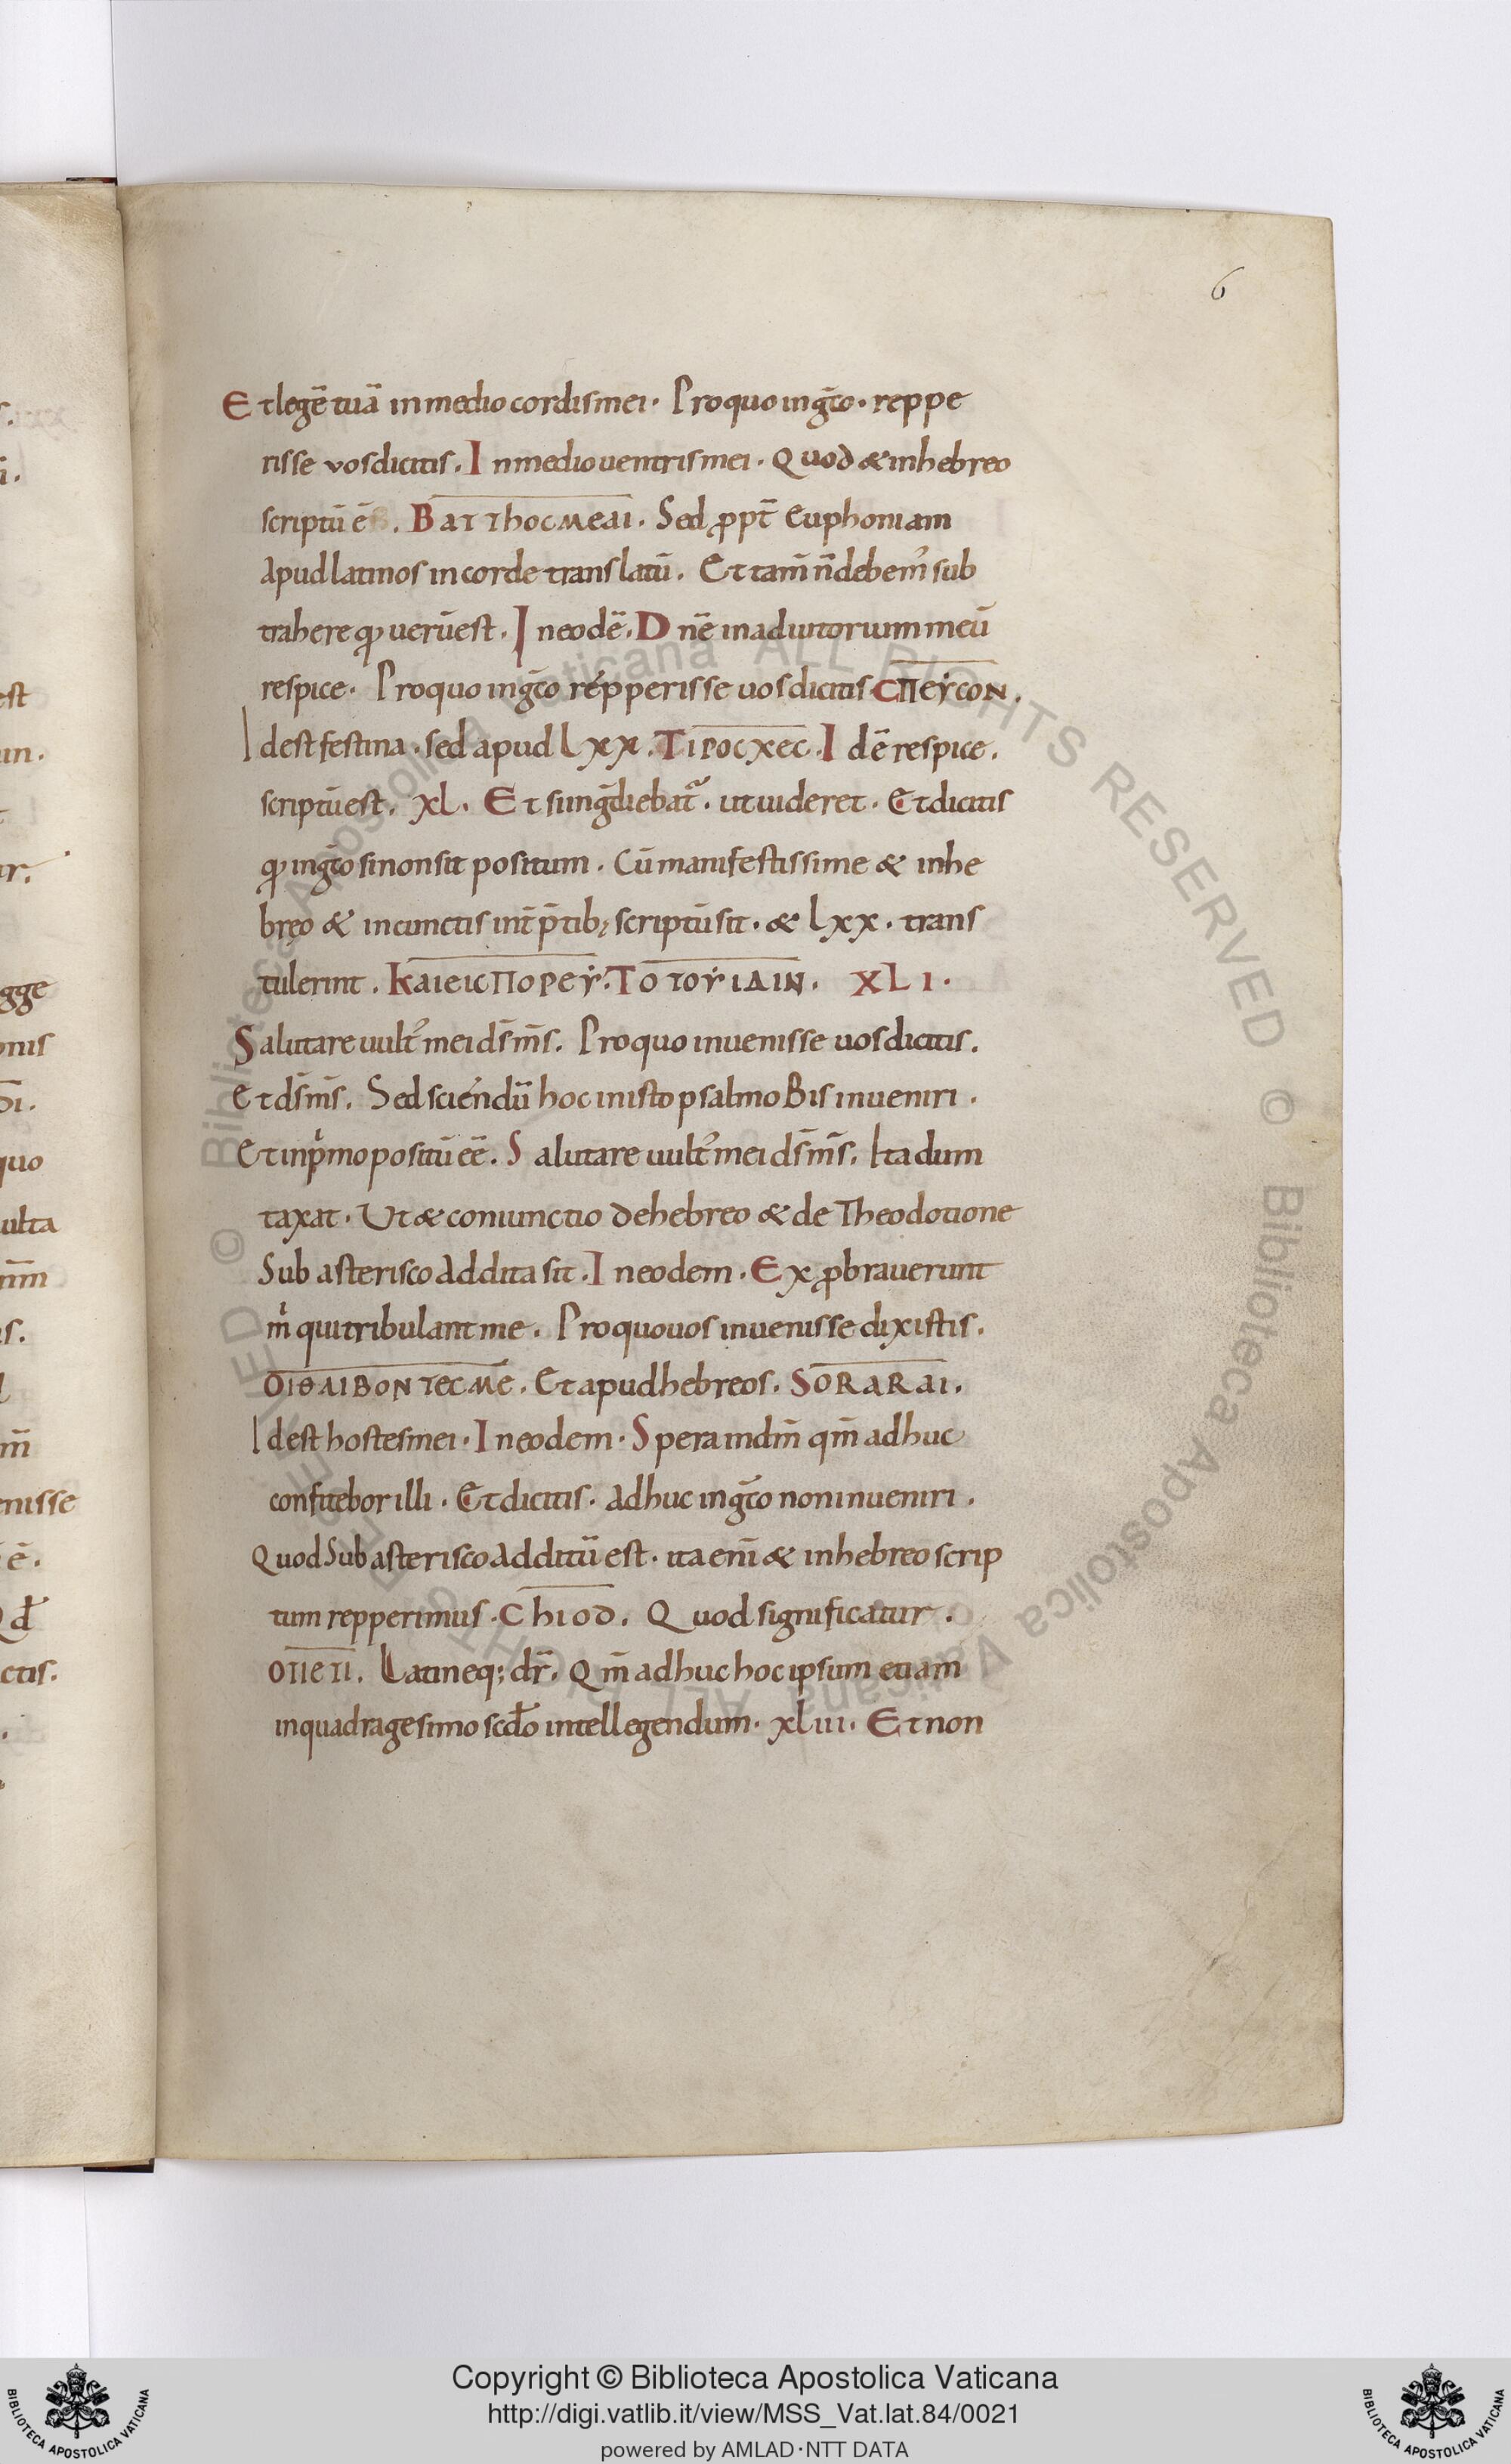 6
Et legē tuā in medio cordis mei. Pro quo in gr̄co. reppe
risse vos dicitis. In medio uentris mei. Quod & in hebreo
scriptū ē. BATTHOCMEAI. Sed ꝓpt̄ euphoniam
apud latinos in corde translatū. Et tam̄ n̄ debemꝰ sub
trahere qđ uerū est. In eodē. Dn̄e in adiutorium meū
respice. Pro quo in gr̄co répperisse uos dicitis CΠEYCON.
Id est festina. sed apud lxx. TIPOCXEC. Idē respice.
scriptū est. xl. Et si ingr̄diebat᷑. ut uideret. Et dicitis
qđ in gr̄co si non sit positum. Cū manifestissime & in he
bręo & in cunctis int̄p̄tib; scriptū sit. & lxx. trans
tulerint. KAIEICΠOPEY. TOTOYIΔIN. XLI.
Salutare uultꝰ mei ds̄ ms̄. Pro quo inuenisse uos dicitis.
Et ds̄ ms̄. Sed sciéndū hoc in isto psalmo Bis inueniri.
Et in pͥmo positū eē. Salutare uultꝰ mei ds̄ ms̄. Ita dum
taxat. Ut & coniunctio de hebreo & de Theodotione
Sub asterisco addita sit. In eodem. Exꝓbrauerunt
mͥ qui tribulant me. Pro quo uos inuenisse dixistis.
OIΘΛIBONTECME. Et apud hebreos. SORARAI.
Id est hostes mei. In eodem. Spera in dm̄ qm̄ adhuc
confitebor illi. Et dicitis. adhuc in gr̄co non inueniri.
Quod Sub asterisco additū est. ita eni̅ & in hebreo scrip
tum repperimus. CHIOD. Quod significatur.
OTIETI. Latineq; dr̄. Qm̄ adhuc hoc ipsum etiam
in quadragesimo scd̄o intellegendum. xliii. Et non
Copyright © Biblioteca Apostolica Vaticana
http://digi.vatlib.it/view/MSS_Vat.lat.84/0021
powered by AMLAD·NTT DATA
BIBLIOTECA APOSTOLICA VATICANA
BIBLIOTECA APOSTOLICA VATICANA